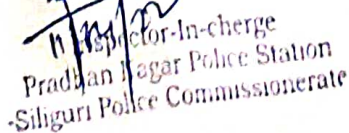 Inspector-In-cherge
Pradhan Nagar Police Station
-Siliguri Police Commissionerate